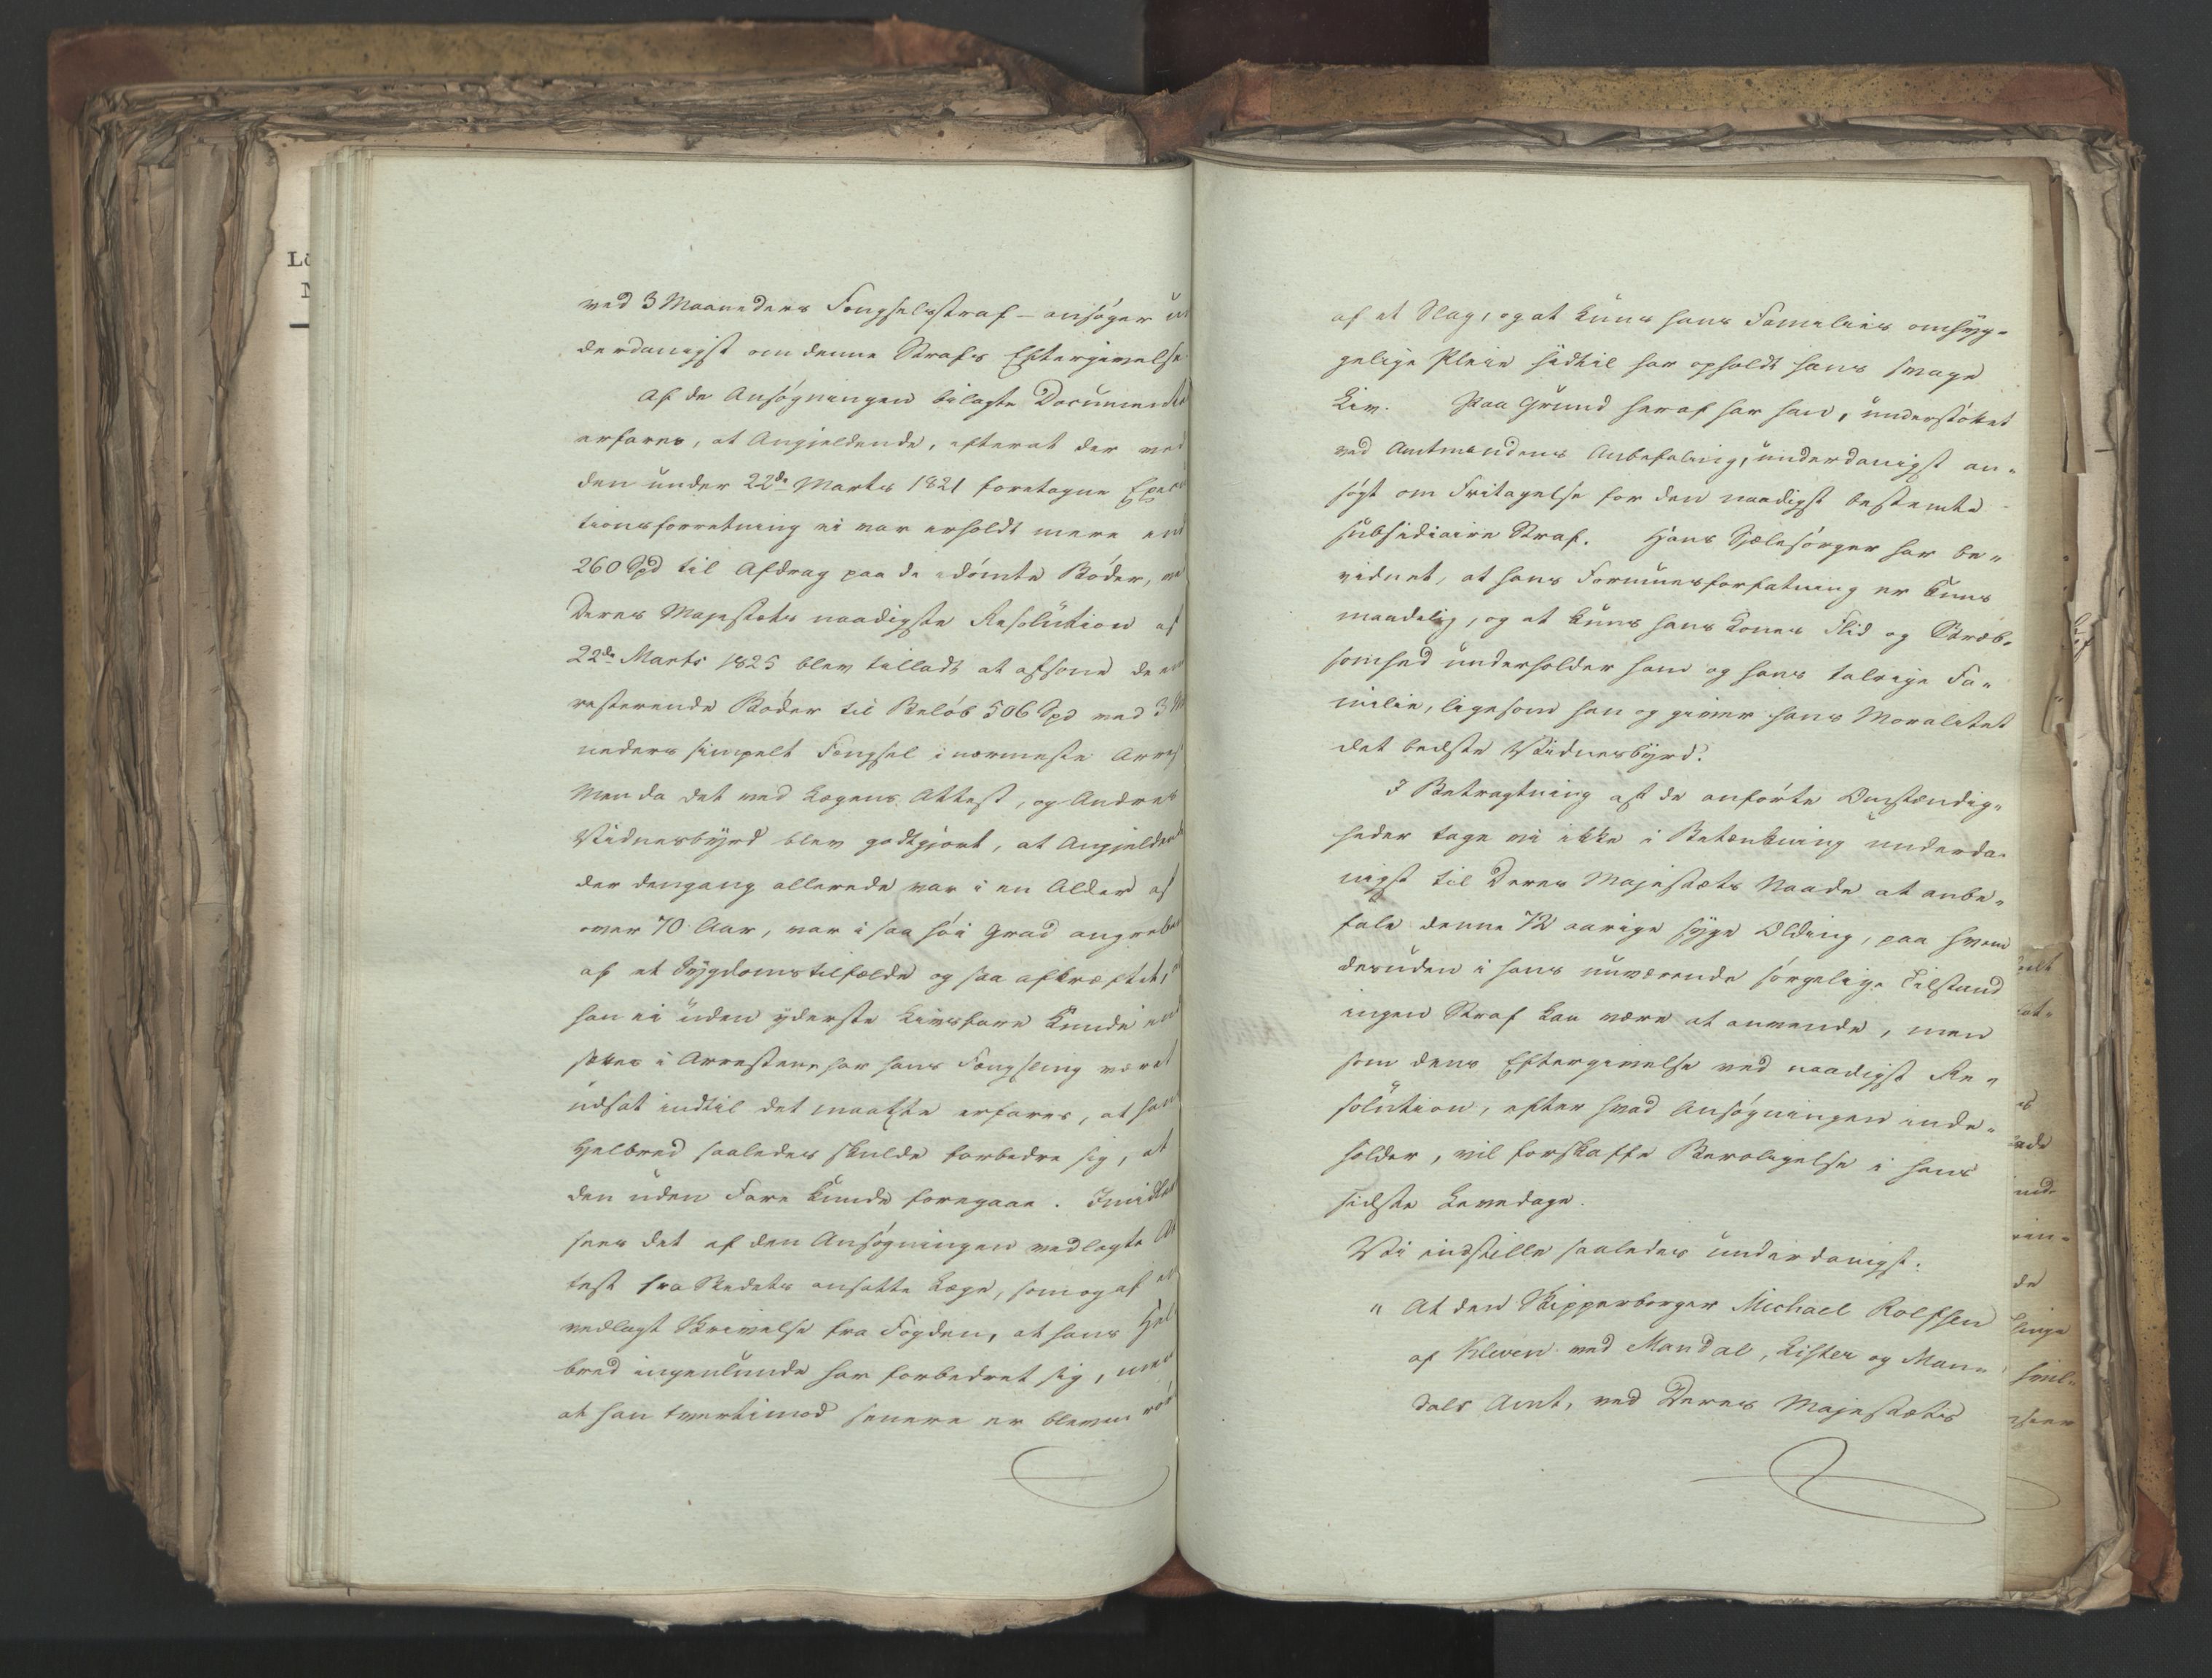 ved 3 Maaneders Fængselsstraf – ansøger un
derdanigst om denne Strafs Eftergivelse.
Af de Ansøgningen bilagte Documenter
erfares, at Angjeldende, efterat der ved
den under 22de Marts 1821 foretagne Exec
tionsforretning ei var erholdt mere end
260 Spd til Afdrag paa de idømte Bøder, ve
Deres Majestæts naadigste Resolution af
22de Marts 1825 blev tilladt at afsone de en
resterende Bøder til Beløb 506 Spd med 3 M
neders simpelt Fængsel i nærmeste Arrest
Men da det ved Lægens Attest, og Andres
Vidnesbyrd blev godtgjort, at Angjeldende
der dengang allerede var i en Alder af
over 70 Aar, var i saa høi Grad angreben
af et Sygdomstilfælde og saa afkræftet,
han ei uden yderste Livsfare kunde ind
sættes i Arresten, har hans Fængsling været
udsat indtil det maatte erfares, at hans
Helbred saaledes skulde forbedre sig, at
den uden Fare kunde foregaae. Imidler
sees det af den Ansøgningen vedlagte At
test fra Stedets ansatte Læge, som og af en
vedlagt Skrivelse fra Fogden, at hans Hel
bred ingenlunde har forbedret sig, men
at han tvertimod senere er bleven rør
af et Slag, og at kuns hans Families omhyg-
gelige Pleie hidtil har opholdt hans svage
Liv. Paa Grund heraf har han, understøttet
ved Amtmandens Anbefaling, underdanigst an-
søgt om Fritagelse for den naadigst bestemte
subsidiaire Straf. Hans Sjælesørger har be-
vidnet, at hans Formuesforfatning er kuns
maadelig, og at kuns hans Kones Flid og Stræb-
somhed underholder ham og hans talrige Fa-
milie, ligesom han og giver hans Moralitet
det bedste Vidnesbyrd.
I Betragtning af de anførte Omstændig-
heder tage vi ikke i Betænkning underda-
nigst til Deres Majestæts Naade at anbe-
fale denne 72 aarige syge Olding, paa hvem
desuden i hans nuværende sørgelige Tilstand
ingen Straf kan være at anvende, men
som dens Eftergivelse ved naadigst Re-
solution, efter hvad Ansøgningen inde-
holder, vil forskaffe Beroligelse i hans
sidste Levedage.
Vi indstille saaledes underdanigst.
" At den Skipperborger Michael Rolfsen
af Kleven ved Mandal, Lister og Man-
dals Amt, ved Deres Majestæts